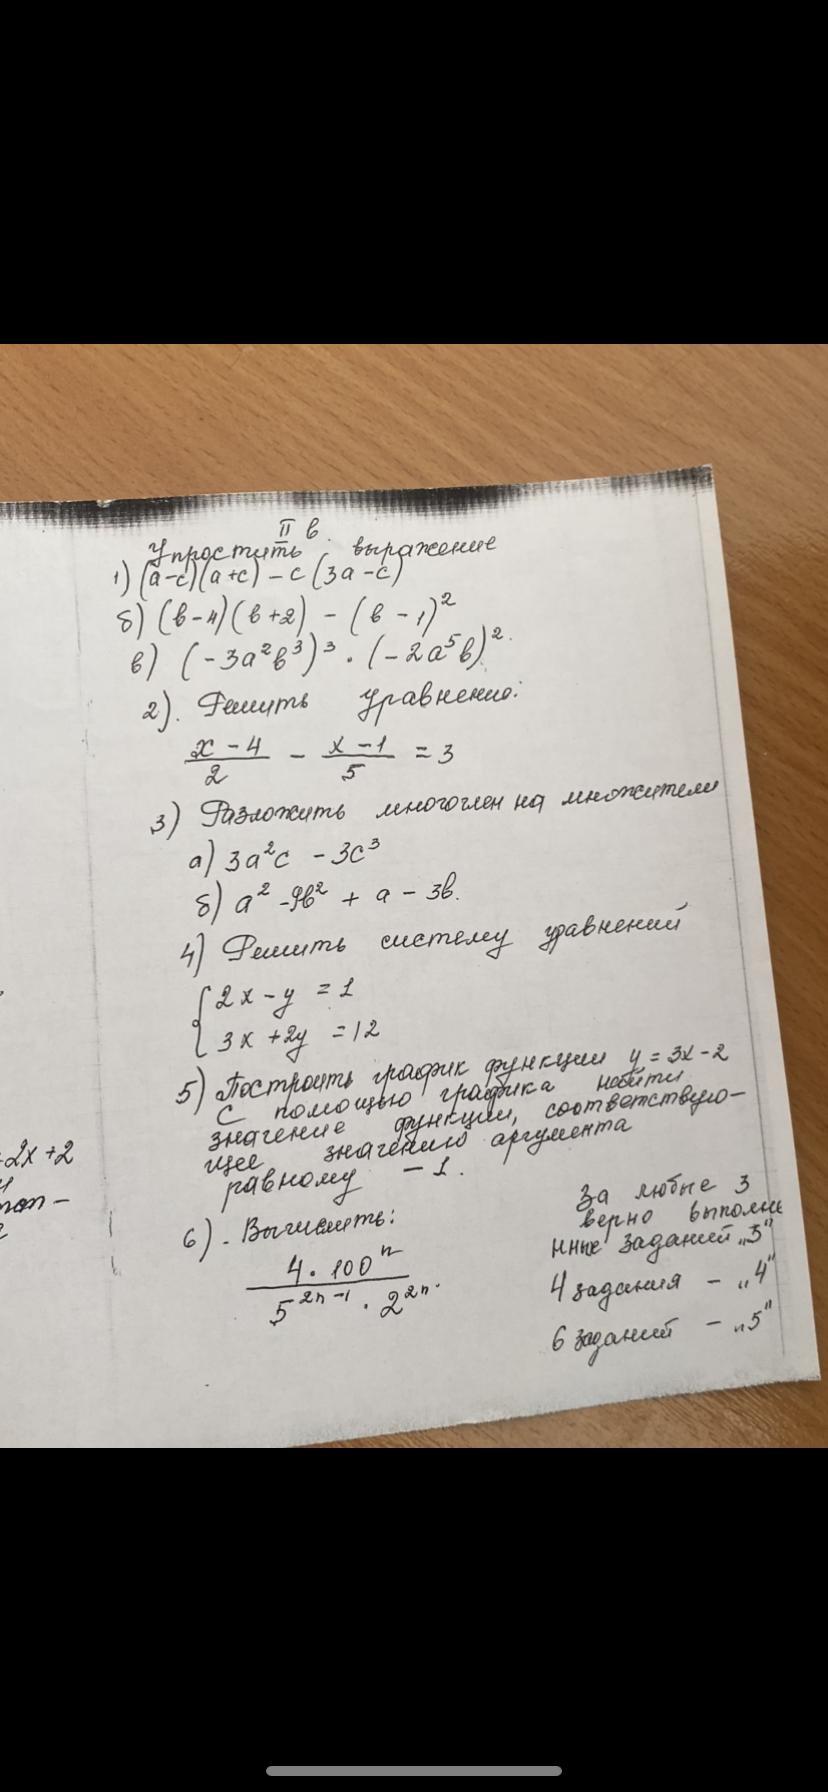 II в.
Упростить выражение
1) (a-c)(a+c) - c(3a-c)
б) (в-4)(в+2) - (в-1)²
в) (-3a²в³)³ · (-2a⁵в)².
2). Решить уравнение:
x-4/2 - x-1/5 = 3
3) Разложить многочлен на множители
а) 3a²c - 3c³
б) a² - 9в² + a - 3в.
4) Решить систему уравнений
{2x - y = 1
3x + 2y = 12
5) Построить график функции y = 3x - 2
С помощью графика найти
значение функции, соответствую-
щее значению аргумента
равному -1.
6). Вычислить:
4 · 100ⁿ
5²ⁿ⁻¹ · 2²ⁿ.
За любые 3
верно выполне
нные заданий „3"
4 задания - „4"
6 заданий - „5"
2x + 2